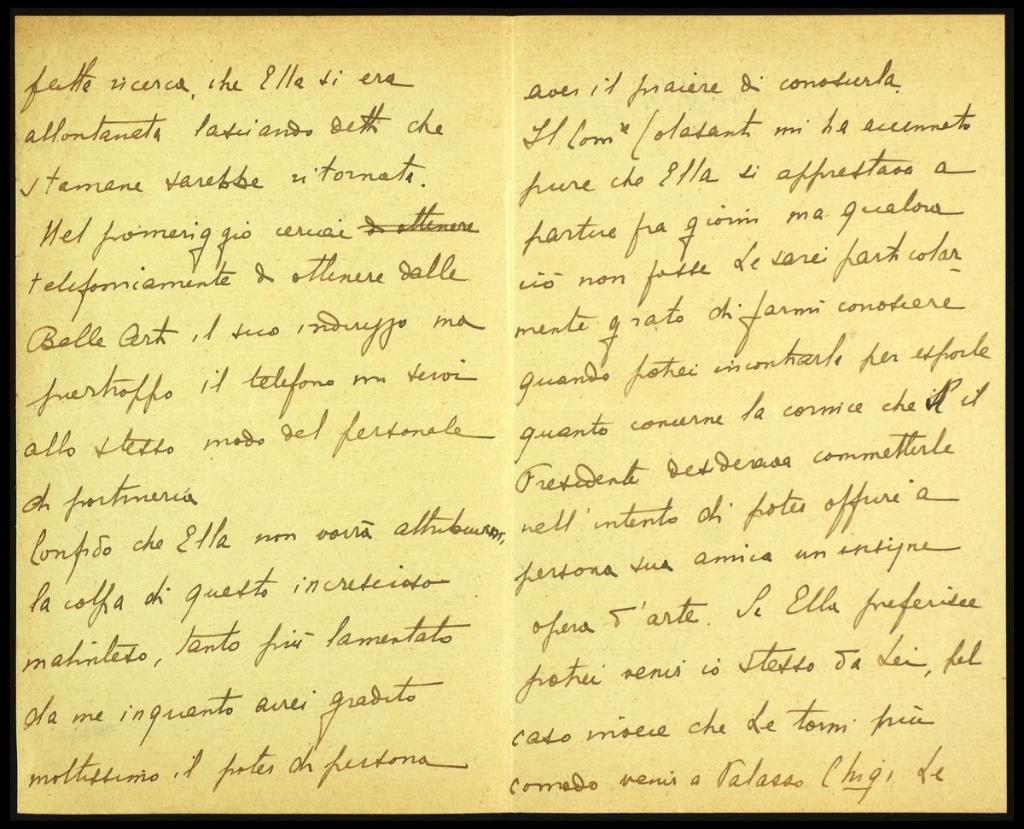 fatta ricerca, che Ella si era
allontanata lasciando detto che
stamane sarebbe ritornata.
Nel pomeriggio cercai di ottenere
telefonicamente di ottenere dalle
Belle Arti il suo indirizzo ma
purtroppo il telefono mi servì
allo stesso modo del personale
di portineria
Confido che Ella non vorrà attribuirmi,
la colpa di questo increscioso
malinteso, tanto più lamentato
da me inquanto avrei gradito
moltissimo il poter di persona
aver il piacere di conoscerla.
Il Comm.re Colasanti mi ha accennato
pure che Ella si apprestava a
partire fra giorni ma qualora
ciò non fosse Le sarei particolar-
mente grato di farmi conoscere
quando potrei incontrarla per esporle
quanto concerne la cornice che il
Presidente desiderava commetterle
nell'intento di poter offrire a
persona sua amica un insigne
opera d'arte. Se Ella preferisce
potrei venir io stesso da Lei, pel
caso invece che Le torni più
comodo venir a Palazzo Chigi Le